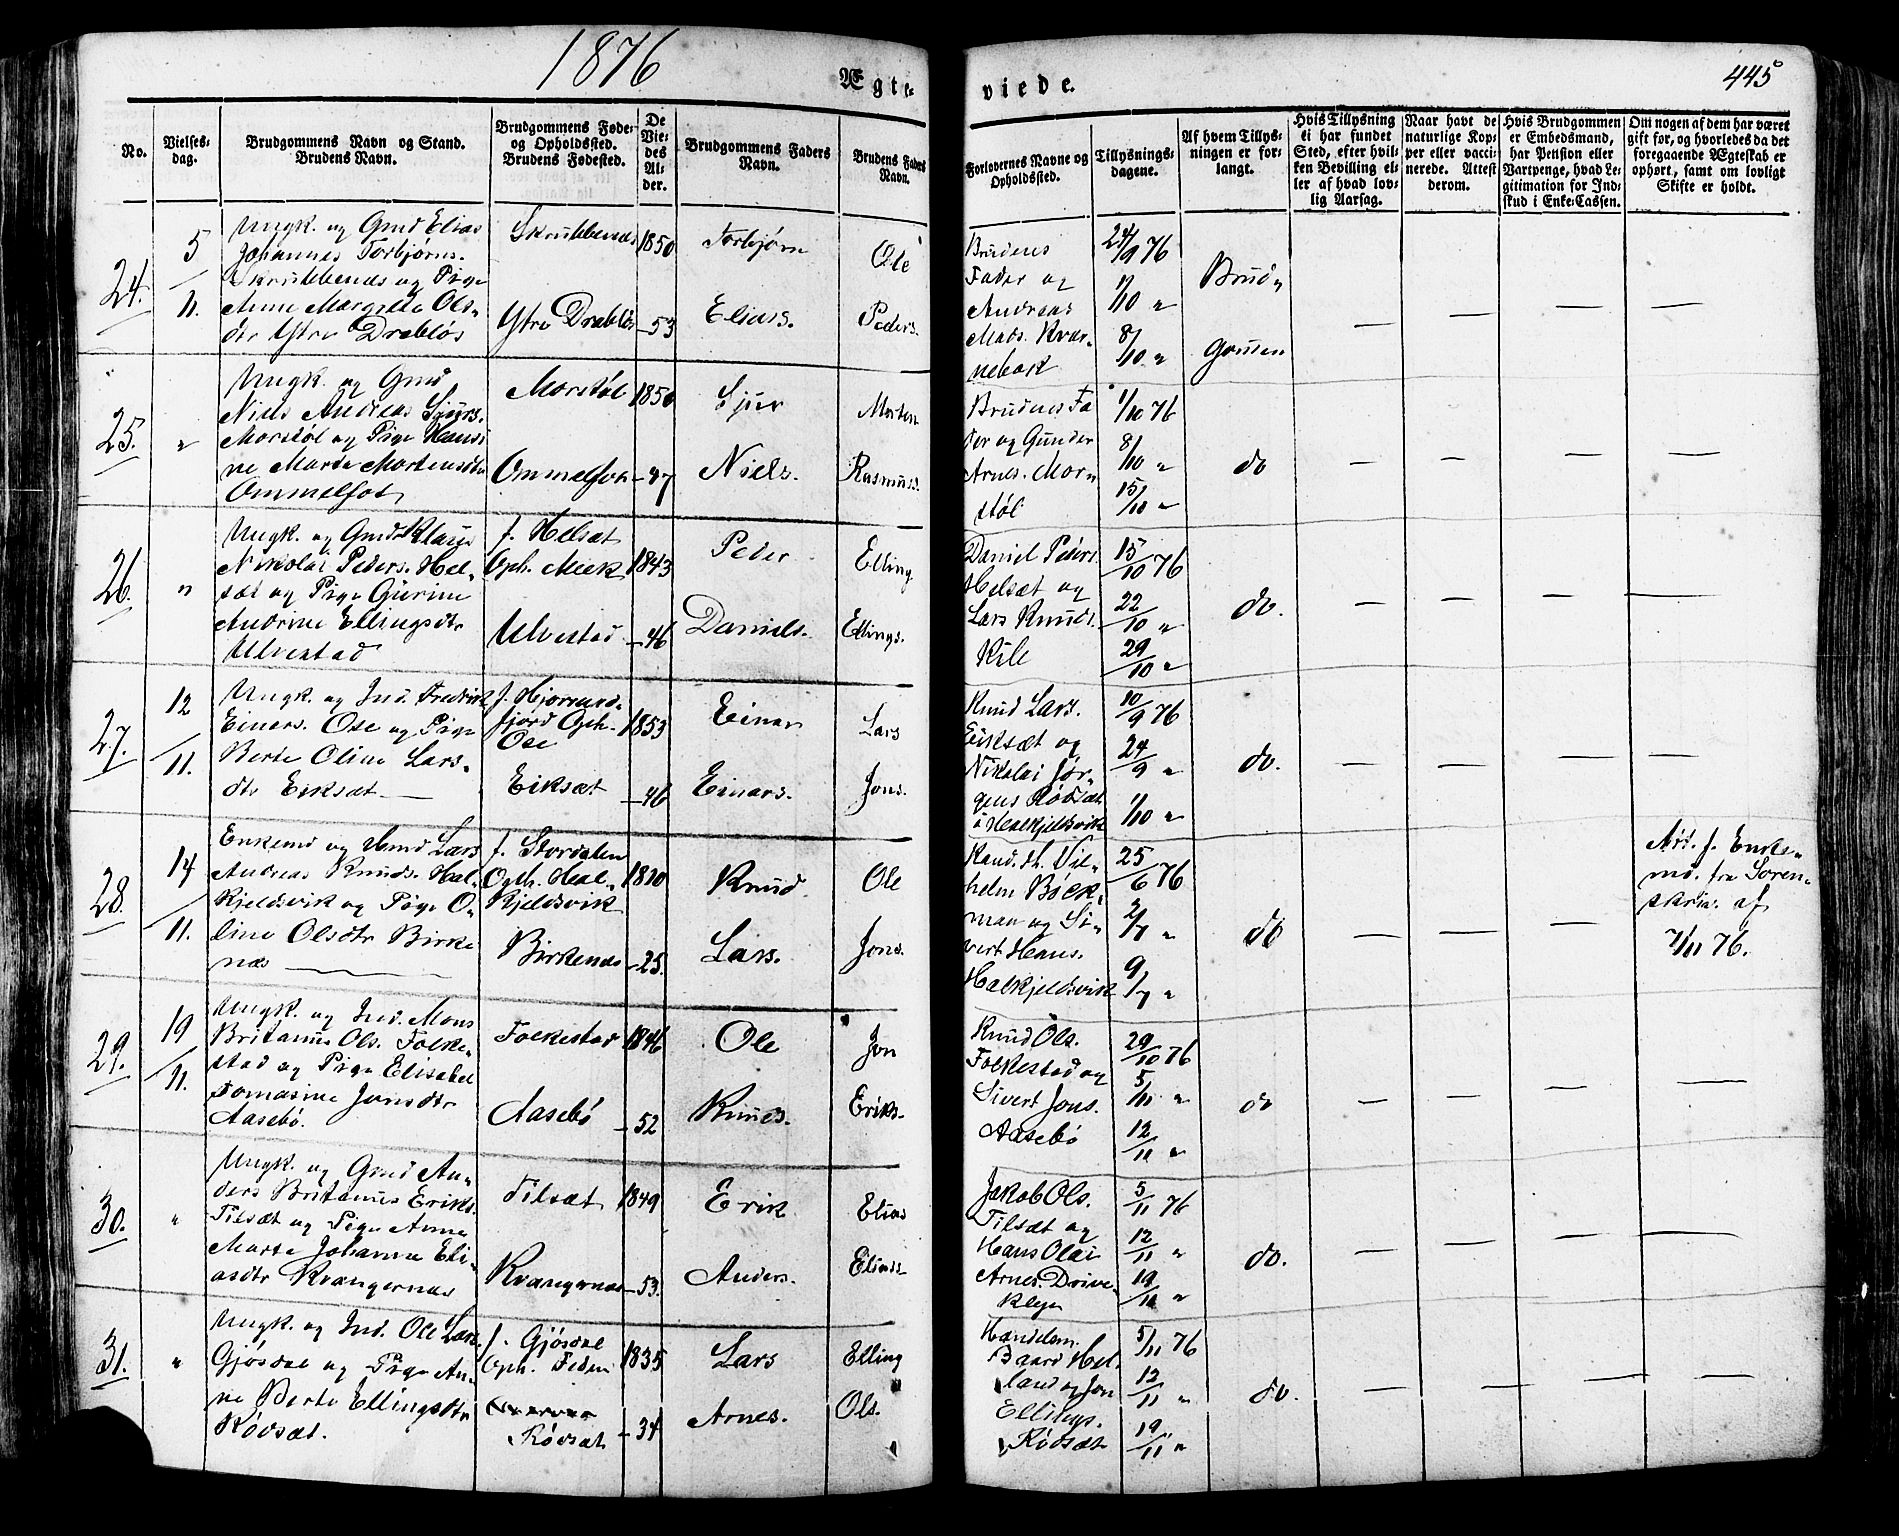 1876
Ægte-
viede.
445
No.
Vielses-
dag.
Brudgommens Navn og Stand.
Brudens Navn.
Brudgommens Føde-
og Opholdssted.
Brudens Fødested.
De
Vie-
des
Al-
der.
Brudgommens Faders
Navn.
Brudens Faders
Navn.
Forlovernes Navne og
Opholdssted.
Tillysnings-
dagene.
Af hvem Tillys-
ningen er for-
langt.
Hvis Tillysning
ei har fundet
Sted, efter hvil-
ken Bevilling el-
ler af hvad lov-
lig Aarsag.
Naar havt de
naturlige Kop-
per eller vacci-
nerede. Attest
derom.
Hvis Brudgommen
er Embedsmand,
har Pension eller
Vartpenge, hvad Le-
gitimation for Ind-
skud i Enke-Cassen.
Om nogen af dem har været
gift før, og hvorledes da det
foregaaende Ægteskab er
ophørt, samt om lovligt
Skifte er holdt.
24.
5/11.
Ungk. og Gmd Elias
Johannes Torbjørns.
Skrubbenes og Pige
Anne Margrete Ols-
dtr Ytre Drabløs
Skrubbenes
Ytre Drabløs
1850
-53
Torbjørn
Elias.
Ole
Peders.
Brudens
Fader og
Andreas
Mads. Kvar-
nebak
24/9 76
1/10 "
8/10 "
Brud-
gomen
25.
"
Ungk. og Gmd
Niels Andreas Sjurs.
Morstøl og Pige Hansi-
ne Marte Mortensdtr
Ommelfot
Morstøl
Ommelfot
1850
-47
Sjur
Niels.
Morten
Rasmus.
Brudens Fa-
der og Gunder
Arnes. Mor-
støl
1/10 76
8/10 "
15/10 "
do
26.
"
Ungk. og Gmd Klaus
Nikolai Peders. Hel-
sæt og Pige Gurine
Andrine Ellingsdtr
Ulvestad
f. Helsæt
Oph. Meek
Ulvestad
1843
-46
Peder
Daniels.
Elling
Ellings.
Daniel Peders.
Helsæt og
Lars Knuds.
Kile
15/10 76
22/10 "
29/10 "
do.
27.
12/11.
Ungk. og Ind. Fredrik
Einars. Ose og Pige
Berte Oline Lars-
dtr Eiksæt
f. Hjorund-
fjord Oph.
Ose
Eiksæt
1853
-46
Einar
Einars.
Lars
Jons.
Knud Lars.
Eiksæt og
Nikolai Jør-
gens Rødsæt
i Halkjeldsvik
10/9 76
24/9 "
1/10 "
do.
28.
14/11.
Enkemd og Hmd Lars
Andreas Knuds. Hal-
kjeldsvik og Pige O-
line Olsdtr Birke-
næs
f. Stordalen
Oph. Hal-
kjeldsvik
Birkenæs
1820
-25.
Knud
Lars.
Ole
Jons.
Kand. th. Vil-
helm Bøck-
man og Si-
vert Hans.
Halkjeldsvik
25/6 76
2/7 "
9/7 "
do
Att. f. Enke-
md. fra Soren-
skriv. af
7/11 76.
29.
19/11.
Ungk. og Ind. Mons
Britanus Ols. Folke-
stad og Pige Elisabet
Tomasine Jonsdtr
Aasebø.
Folkestad
Aasebø
1846
-52
Ole
Knuds.
Jon
Eriks.
Knud Ols.
Folkestad og
Sivert Jons.
Aasebø
29/10 76
5/11 "
12/11 "
do
30.
"
Ungk. og Gmd An-
ders Britanus Eriks.
Tilsæt og Pige Anne
Marte Johanne Eli-
asdtr Kvangernæs
Tilsæt
Kvangernæs
1849
-53.
Erik
Anders.
Elias
Elias.
Jakob Ols.
Tilsæt og
Hans Olai
Arnes. Drive-
klep
5/11 76
12/11 "
19/11 "
do.
31.
"
Ungk. og Ind. Ole Lars.
Gjøsdal og Pige An-
ne Berte Ellingsdtr
Rødsæt.
f. Gjøsdal
Oph. Feden
Rødsæt
1835
-34
Lars
Arnes.
Elling
Ols.
Handelsm.
Baard Hel-
land og Jon
Ellings.
Rødsæt
5/11 76
12/11 "
19/11 "
do.